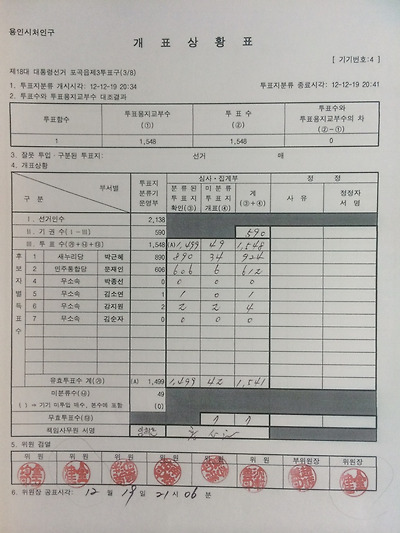 용인시처인구
개 표 상 황 표
[ 기기번호:4 ]
제18대 대통령선거 포곡읍제3투표구(3/8)
1. 투표지분류 개시시각: 12-12-19 20:34 투표지분류 종료시각: 12-12-19 20:41
2. 투표수와 투표용지교부수 대조결과
투표함수 투표용지교부수 (①) 투 표 수 (②) 투표수와 투표용지교부수의 차 (②-①)
1 1,548 1,548 0
3. 잘못 투입·구분된 투표지: 선거 매
4. 개표상황
구 분 부서별 투표지 분류기 운영부 심사·집계부 정 정
분 류 된 투 표 지 확인(③) 미 분 류 투 표 지 개표(④) 계 (③+④) 사 유 정정자 서 명
Ⅰ. 선거인수 2,138
Ⅱ. 기 권 수 (Ⅰ-Ⅲ) 590 590
Ⅲ. 투 표 수 (㉮+㉯+㉰) 1,548 (A) 1,499 49 1,548
후보자별득표수
1 새누리당 박근혜 890 890 34 924
2 민주통합당 문재인 606 606 6 612
4 무소속 박종선 0 0 0 0
5 무소속 김소연 1 1 0 1
6 무소속 강지원 2 2 2 4
7 무소속 김순자 0 0 0 0
유효투표수 계(㉮) (A) 1,499 1,499 42 1,541
미분류수(㉯) 49
( ) → 기기 미투입 매수, 본수에 포함 (0)
무효투표수(㉰) 7 7
책임사무원 서명
5. 위원 검열
위 원 위 원 위 원 위 원 위 원 위 원 부위원장 위원장
6. 위원장 공표시각: 12 월 19 일 21 시 06 분